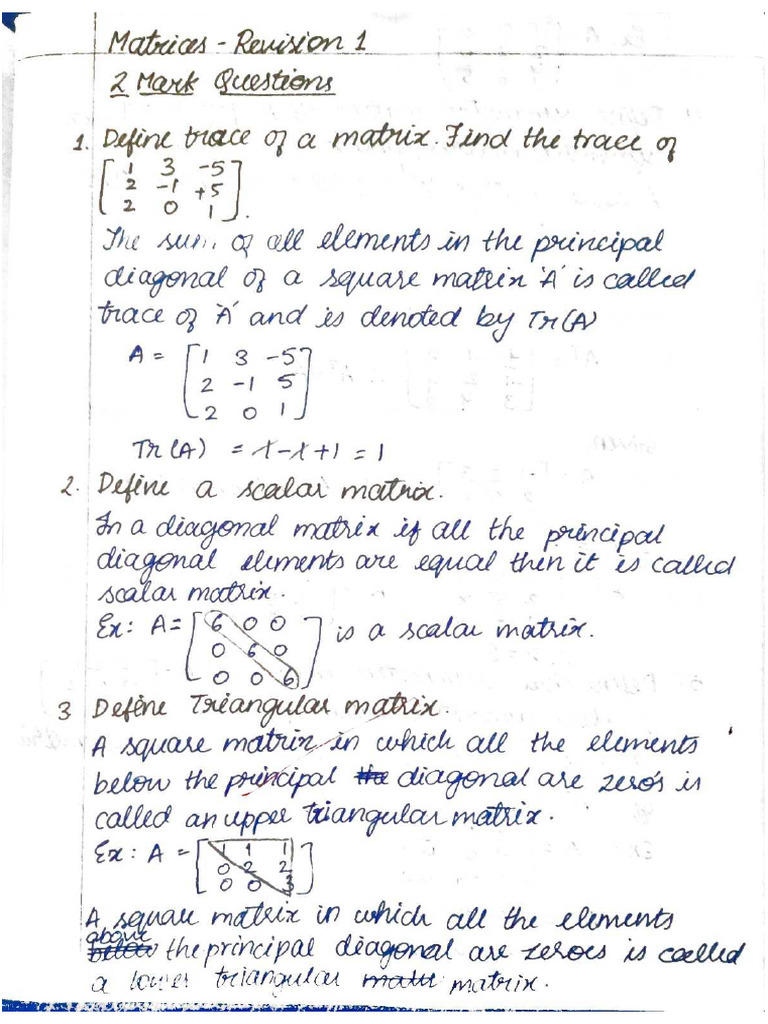 Matrices - Revision 1
2 Mark Questions
1. Define trace of a matrix. Find the trace of
[1 3 -5
2 -1 +5
2 0 1].
The sum of all elements in the principal
diagonal of a square matrix 'A' is called
trace of 'A' and is denoted by Tr(A)
A = [1 3 -5
2 -1 5
2 0 1]
Tr(A) = 1-1+1 = 1
2. Define a scalar matrix.
In a diagonal matrix if all the principal
diagonal elements are equal then it is called
scalar matrix.
Ex: A = [6 0 0
0 6 0
0 0 6] is a scalar matrix.
3 Define Triangular matrix.
A square matrix in which all the elements
below the principal the diagonal are zero's is
called an upper triangular matrix.
Ex: A = [1 1 1
0 2 2
0 0 3]
A square matrix in which all the elements
above
below the principal diagonal are zeroes is called
a lower triangular matr matrix.